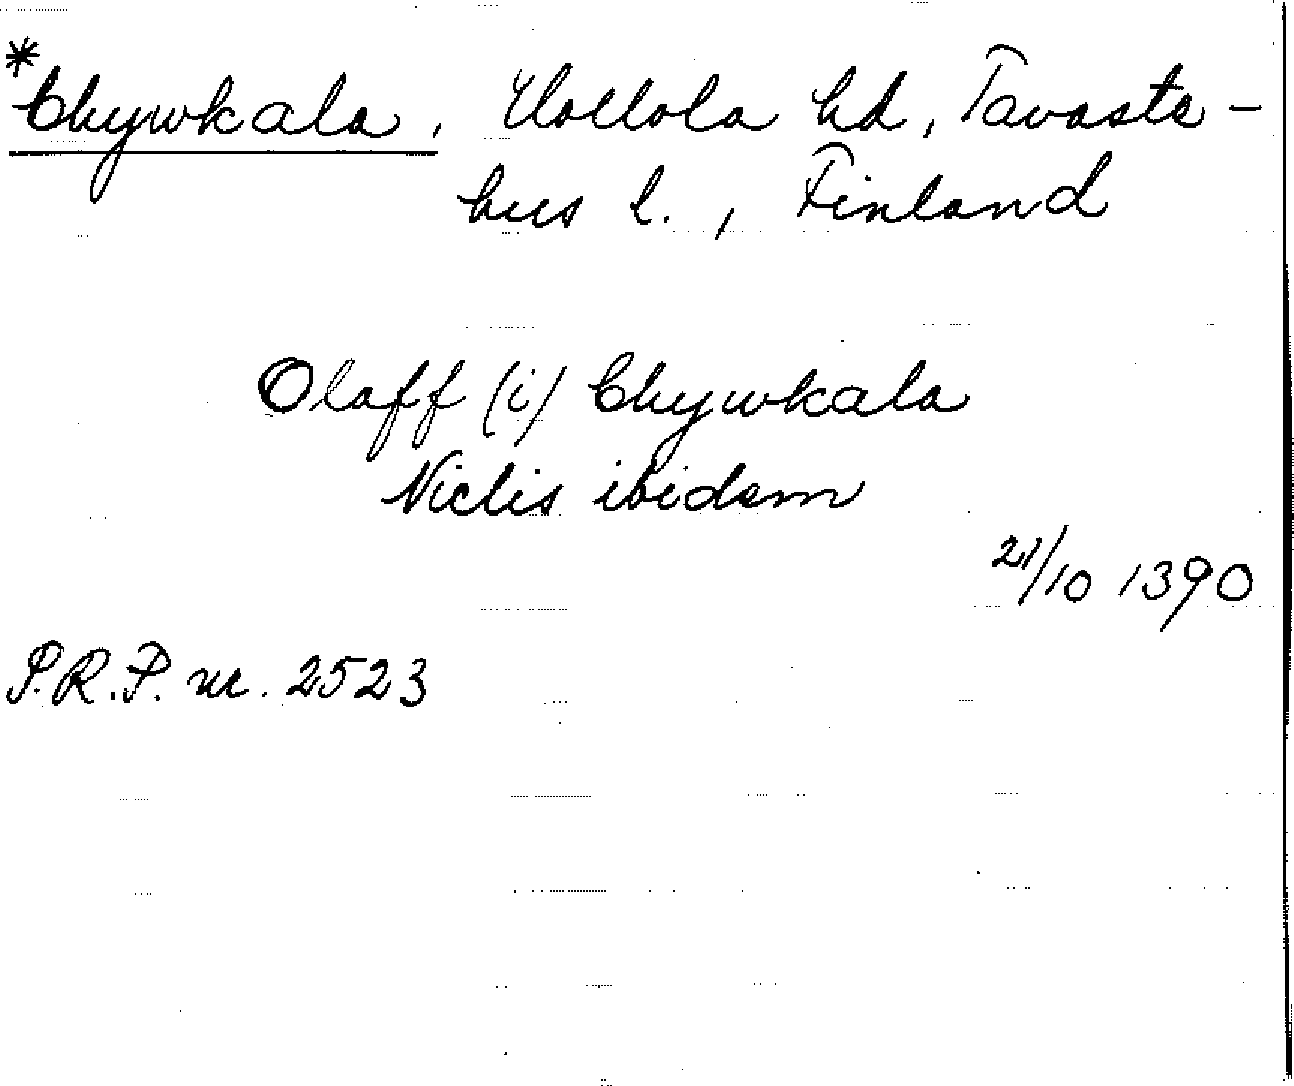 *Chywkala, Hollola hd, Tavaste-
hus l., Finland
Olaff (i) Chywkala
Niclis ibidem
21/10 1390
S.R.P. nr. 2523